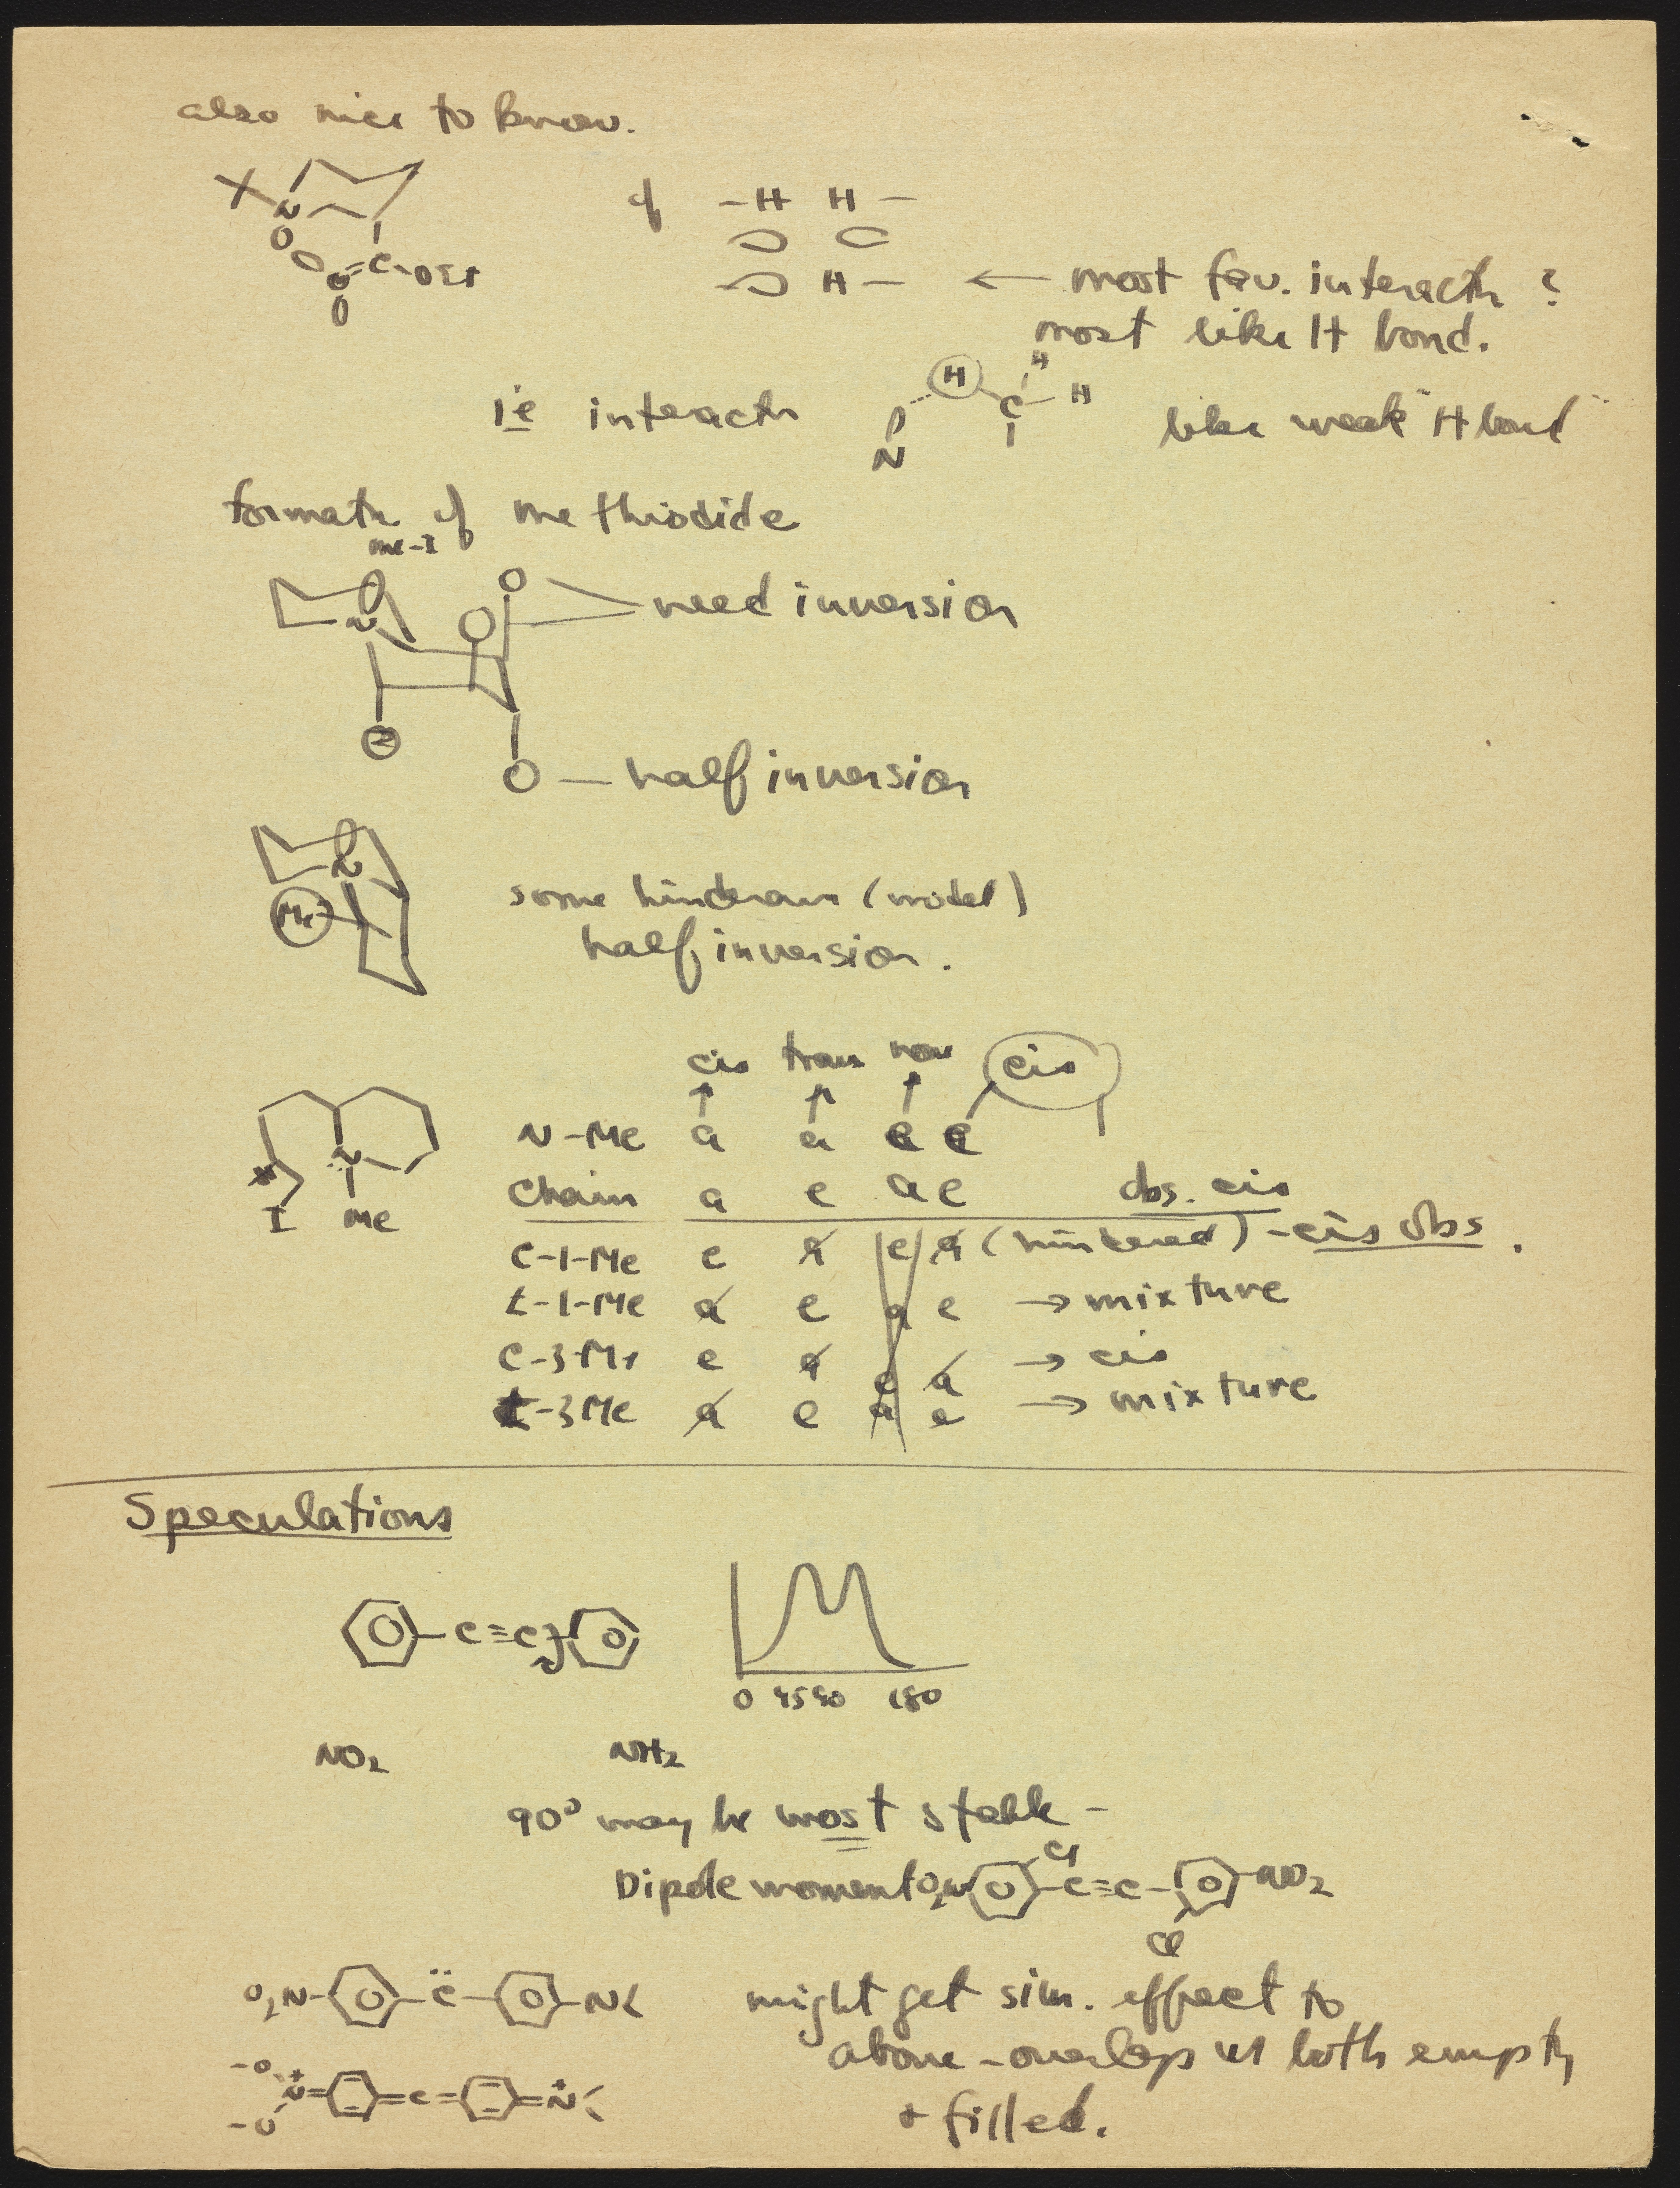 also nice to know.
X N C-OEt
of -H H-
H- ← most fav. interactn ?
most like H bond.
ie interactn N H C H H like weak "H bond"
formatn of methiodide
me-I
N need inversion
half inversion
N
Me some hindrance (model)
half inversion.
cis trans nor cis
N-Me a a e e
Chain a e a e obs. cis
C-1-Me e a e a (hindered) - cis obs.
t-1-Me a e a e → mixture
C-3-Me e a e a → cis
t-3Me a e a e → mixture
N
I Me
Speculations
C≡C
0 45 90 180
NO2 NH2
90° may be most stable -
Dipole moment O2N Cl C≡C NO2
Cl
O2N C̈ N< might get sim. effect to
above - overlap w both empty
+ filled.
-O N+ = = C = = N+<
-O